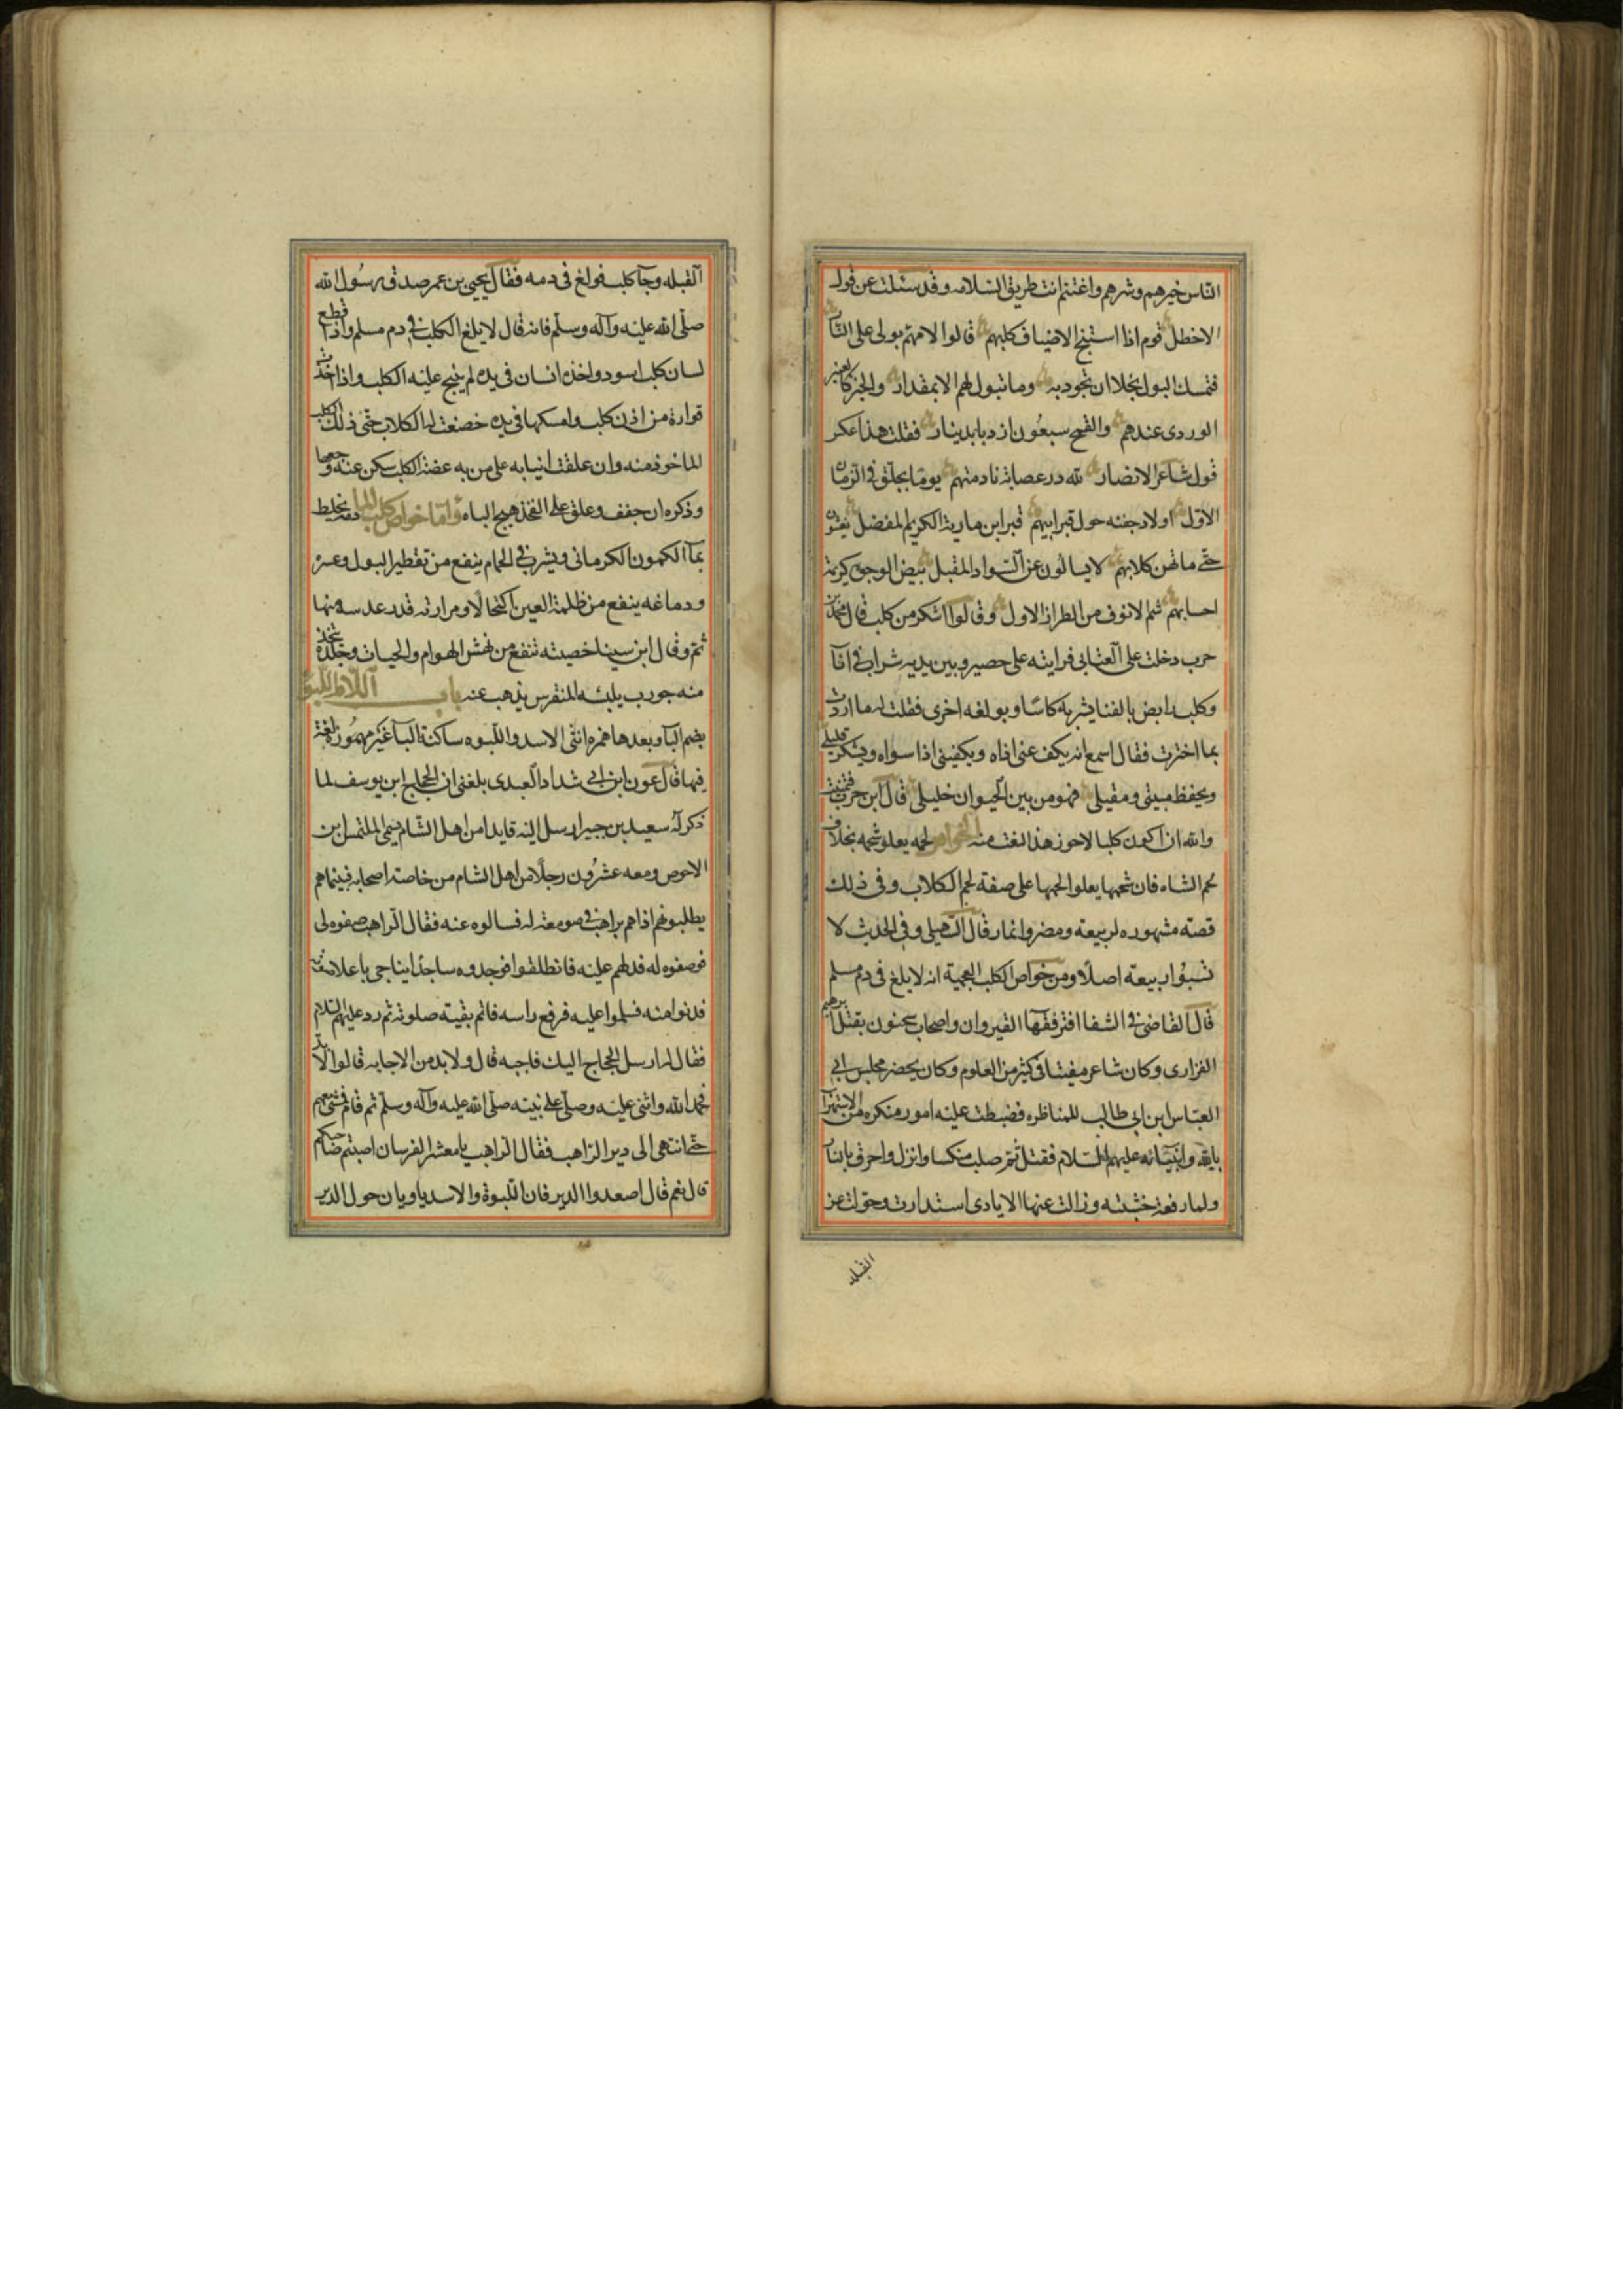 الناس خيرهم وشرهم واغتنم انت طريق السلامه وقد سئلت عن قول
الاخطل قوم اذا استنبح الاضياف كلبهم قالوا لامهم بولى على النار
فتمسك البول بخلا ان تجود به وما تبول لهم الا بمقدار والخبز كالعنبر
الوردى عندهم والقمح سبعون اردبا بدينار فقلت هذا عكس
قول شاعر الانصار لله در عصابة نادمتهم يوما بجلق فى الزمان
الاول اولاد جفنه حول قبر ابيهم قبر ابن مارية الكريم المفضل يغشون
حتى ما تهر كلابهم لا يسالون عن السواد المقبل بيض الوجوه كريمة
احسابهم شم الانوف من الطراز الاول وقالوا اشكر من كلب قال محمد بن
حرب دخلت على العتابى فرايته على حصير وبين يديه شراب فى اناء
وكلب رابض بالفنا يشرب كاسا ويولغه اخرى فقلت له ما اردت
بما اخترت فقال اسمع انه يكف عنى اذاه ويكفينى اذا سواه ويشكر قليلى
ويحفظ مبيتى ومقيلى فهو من بين الحيوان خليلى قال ابن حرب فتمنيت
والله ان اكون كلبا لاحوز هذا النعت منه الخواص لحمه يعلو شحمه بخلاف
لحم الشاه فان شحمها يعلوا لحمها على صفة لحم الكلاب وفى ذلك
قصة مشهوره لربيعة ومضر وانمار قال السهيلى وفى الحديث لا
تسبوا ربيعة اصلا ومن خواص الكلب العجيبة انه لا يلغ فى دم مسلم
قال القاضى فى الشفا افتى فقها القيروان واصحاب سحنون بقتل ابرهيم
الفزارى وكان شاعر مفننا فى كثير من العلوم وكان يحضر مجلس ابى
العباس ابن ابى طالب للمناظره فضبطت عليه امور منكره من الاستهزاء
بالله وانبيائه عليهم السلام فقتل ثم صلب منكسا وانزل واحرق بالنار
ولما رفعت خشبته وزالت عنها الايادى استدارت وحولت عن
القبله
القبله وجاء كلب فولغ فى دمه فقال يحيى بن عمر صدق رسول الله
صلى الله عليه وآله وسلم فانه قال لا يلغ الكلب فى دم مسلم واذا قطع
لسان كلب اسود واخذه انسان فى يده لم ينبح عليه الكلب واذا اخذت
قوارة من اذن كلب وامسكها فى يده خضعت له الكلاب حتى ذلك الكلب
الماخوذ منه وان علقت انيابه على من به عضة الكلب سكن عنه وجعها
وذكره ان جفف وعلق على الفخذ هيج الباه واما خواص كلب الما يخلط
بماء الكمون الكرمانى ويشرب فى الحمام ينفع من تقطير البول وعسره
ودماغه ينفع من ظلمة العين اكتحالا ومرارته قدر عدسه منها
سم وقال ابن سينا خصيته تنفع من نهش الهوام والحيات وجلده يتخذ
منه جورب يلبسه المنقرس يذهب عنه باب اللام اللبوه
بضم الباء وبعدها همزه انثى الاسد واللبوه ساكنة الباء غير مهموزه لغة
فيها قال عون ابن ابى شداد العبدى بلغنى ان الحجاج ابن يوسف لما
ذكر له سعيد بن جبير ارسل اليه قايدا من اهل الشام يسمى الملتمس ابن
الاحوص ومعه عشرون رجلا من اهل الشام من خاصة اصحابه فبينما هم
يطلبونهم اذا هم براهب فى صومعة له فسالوه عنه فقال الراهب صفوه لى
فوصفوه له فدلهم عليه فانطلقوا فوجدوه ساجدا يناجى باعلا صوته
فدنوا منه فسلموا عليه فرفع راسه فاتم بقية صلوته ثم رد عليهم السلام
فقال له ارسل الحجاج اليك فاجبه قال ولا بد من الاجابه قالوا لا بد
فحمد الله واثنى عليه وصلى على نبيه صلى الله عليه وآله وسلم ثم قام فمشى معهم
حتى انتهى الى دير الراهب فقال الراهب يا معشر الفرسان اصبتم صاحبكم
قال نعم قال اصعدوا الدير فان اللبوة والاسد ياويان حول الدير